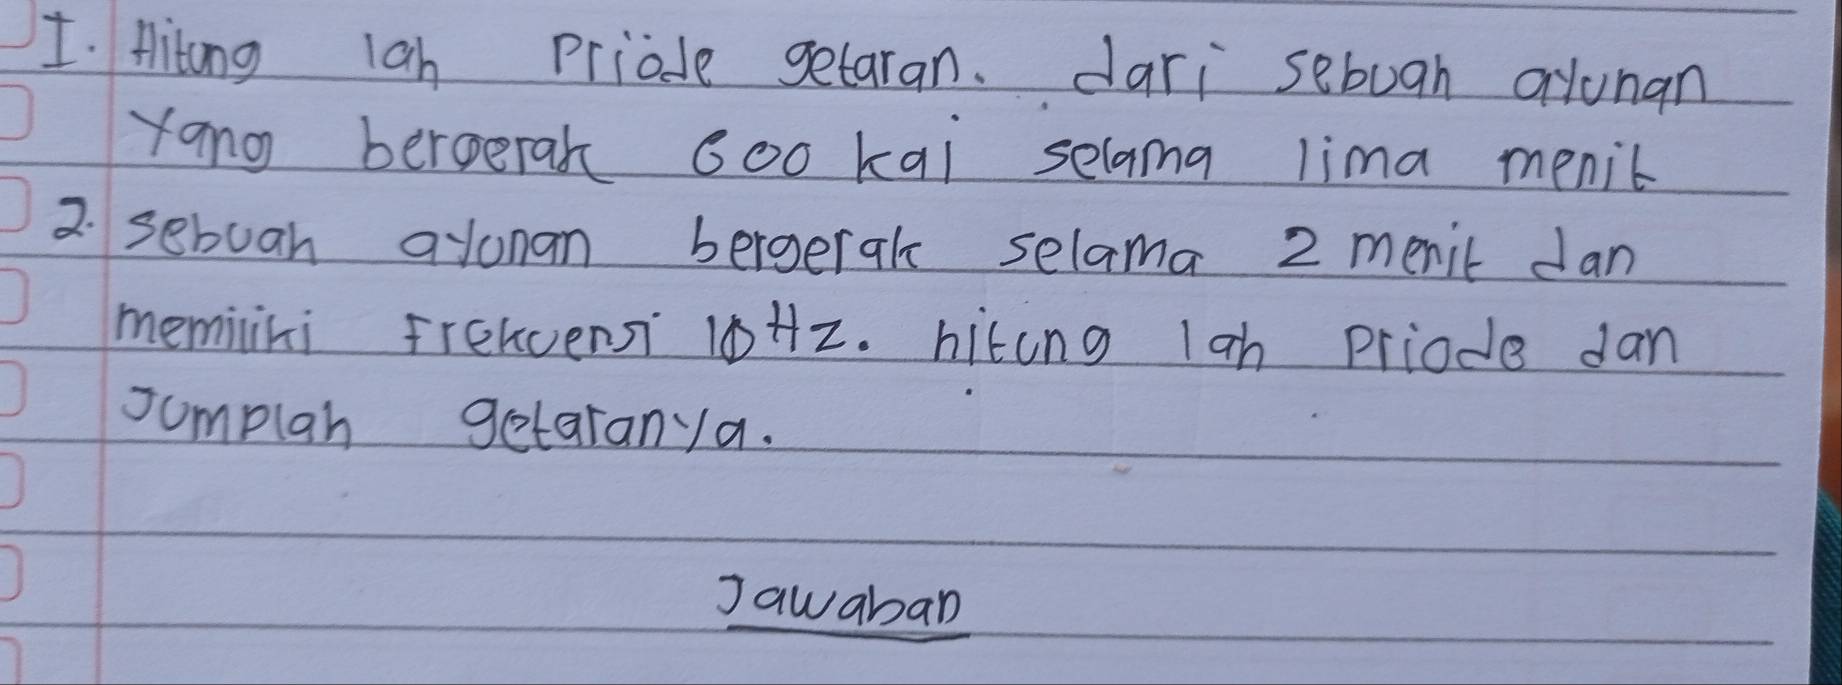 1. Hitung lah Priode getaran. dari sebuah ayunan
Yang bergerak 600 kali selama lima menit
2. sebuah ayunan bergerak selama 2 menit dan
memiliki Frekuensi 10 Hz. hitung lah Priode dan
Jumplah getaranya.
Jawaban